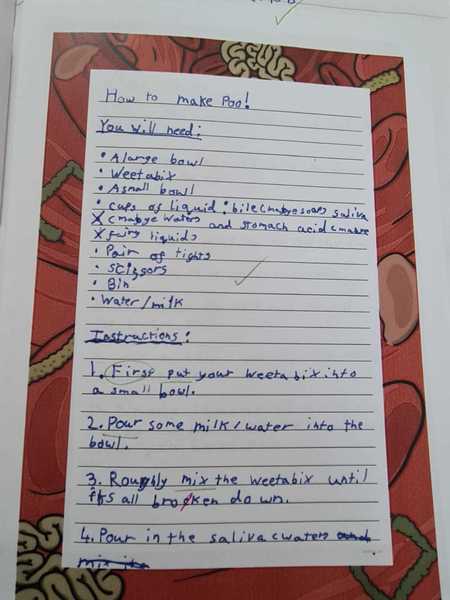 How to make Poo!
You will need:
• A large bowl
• Weetabix
• A small bowl
• cups of liquid : bile (mabye soap), saliva
(mabye water) and stomach acid (mabye
fairy liquid)
• Pair of tights
• Scissors
• Bin
• Water/milk
Instructions:
1. First put your weetabix into
a small bowl.
2. Pour some milk/water into the
bowl.
3. Roughly mix the weetabix until
its all broken down.
4. Pour in the saliva (water) and
mix it